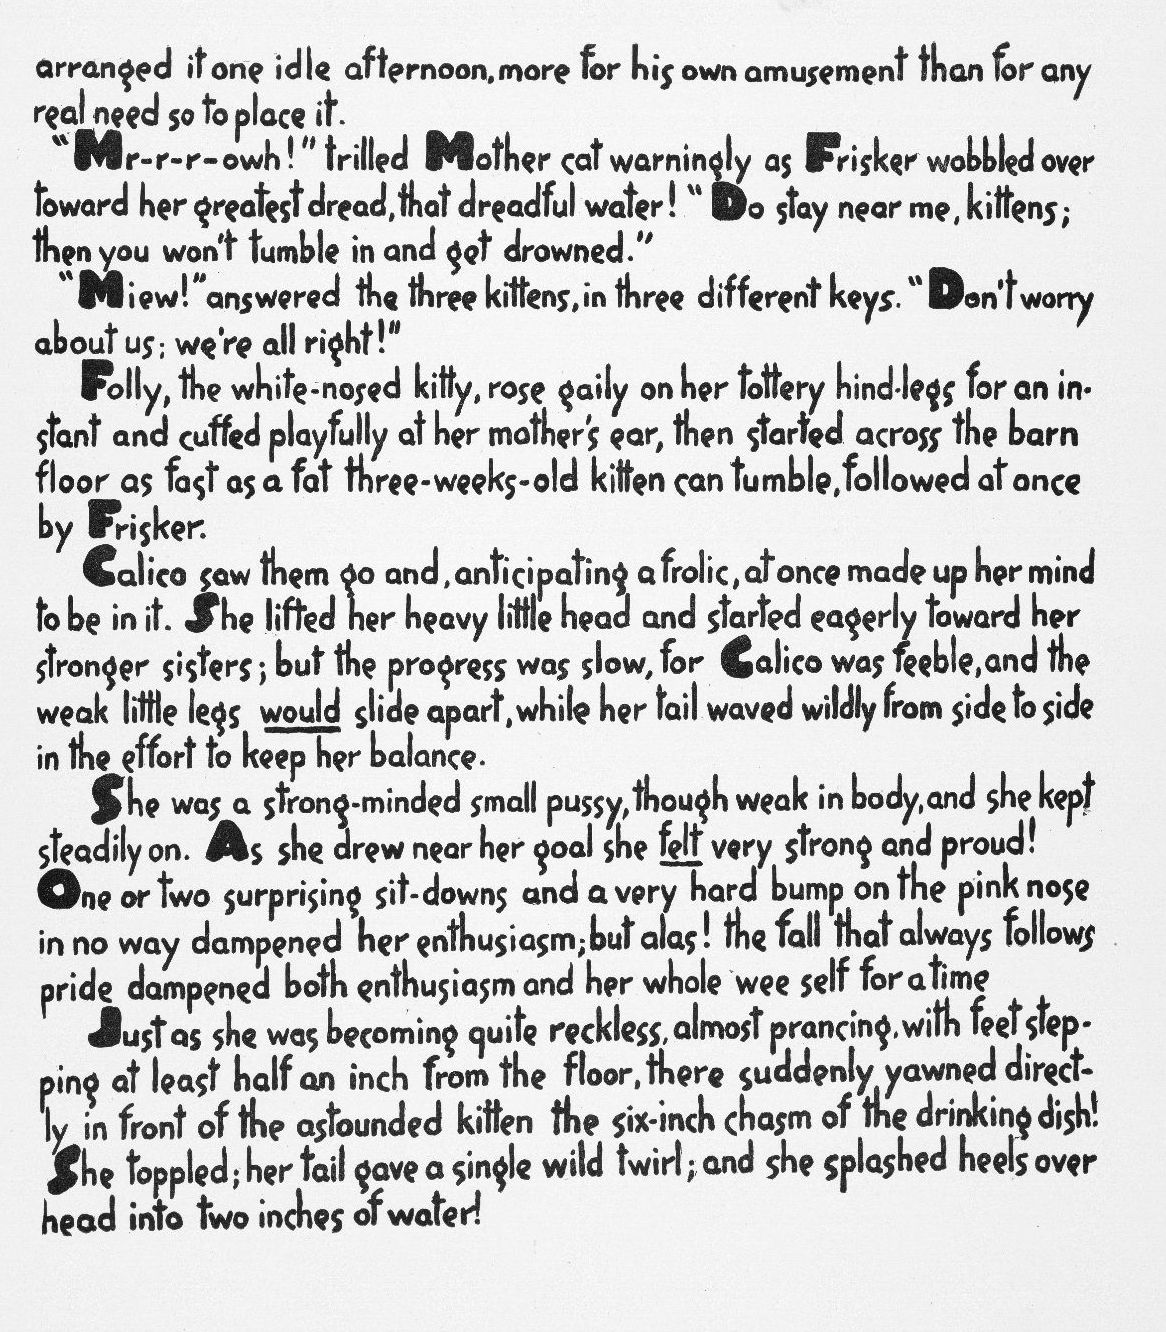 arranged it one idle afternoon, more for his own amusement than for any
real need so to place it.
"Mr-r-r-owh!" trilled Mother cat warningly as Frisker wobbled over
toward her greatest dread, that dreadful water! "Do stay near me, kittens;
then you won't tumble in and get drowned."
"Miew!" answered the three kittens, in three different keys. "Don't worry
about us; we're all right!"
Folly, the white-nosed kitty, rose gaily on her tottery hind-legs for an in-
stant and cuffed playfully at her mother's ear, then started across the barn
floor as fast as a fat three-weeks-old kitten can tumble, followed at once
by Frisker.
Calico saw them go and, anticipating a frolic, at once made up her mind
to be in it. She lifted her heavy little head and started eagerly toward her
stronger sisters; but the progress was slow, for Calico was feeble, and the
weak little legs would slide apart, while her tail waved wildly from side to side
in the effort to keep her balance.
She was a strong-minded small pussy, though weak in body, and she kept
steadily on. As she drew near her goal she felt very strong and proud!
One or two surprising sit-downs and a very hard bump on the pink nose
in no way dampened her enthusiasm; but alas! the fall that always follows
pride dampened both enthusiasm and her whole wee self for a time
Just as she was becoming quite reckless, almost prancing, with feet step-
ping at least half an inch from the floor, there suddenly yawned direct-
ly in front of the astounded kitten the six-inch chasm of the drinking dish!
She toppled; her tail gave a single wild twirl; and she splashed heels over
head into two inches of water!